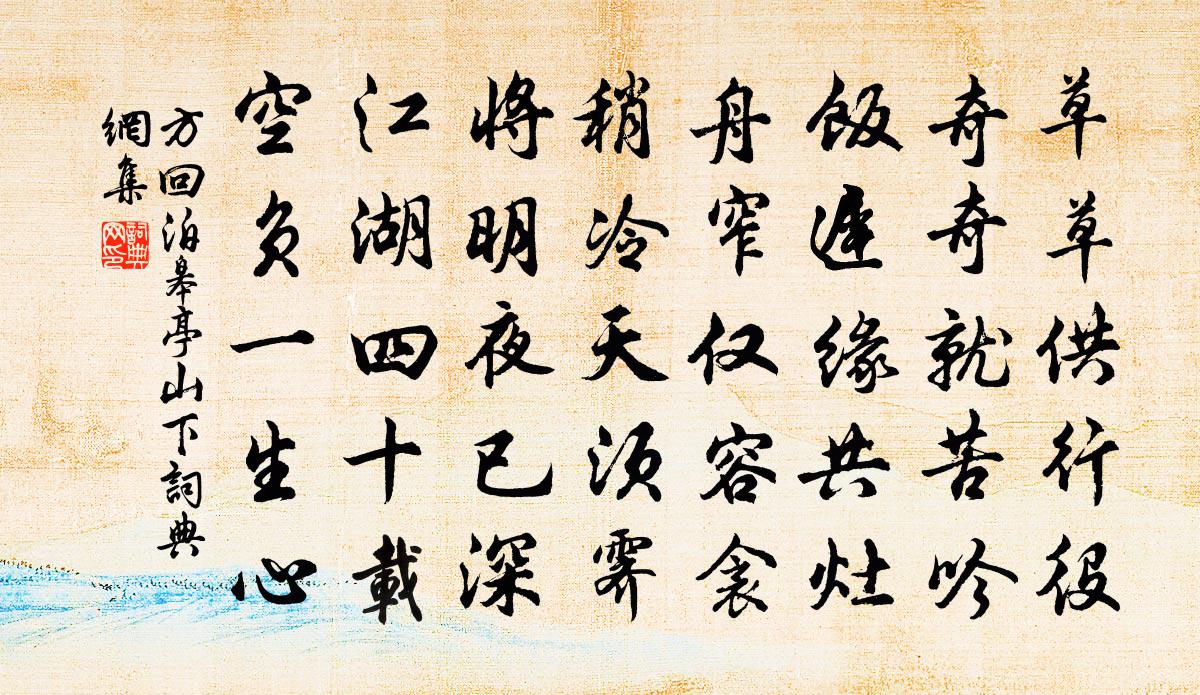 草草供行役
奇奇就苦吟
飯遲緣共灶
舟窄仅容衾
稍冷天須霽
将明夜已深
江湖四十載
空负一生心
方回泊皋亭山下詞典
網集
詞典
网印